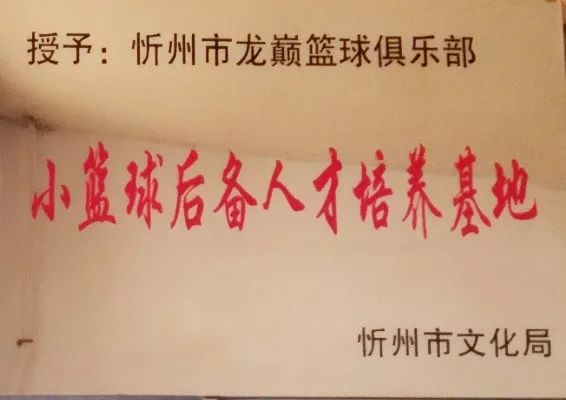 授予：忻州市龙巅篮球俱乐部
小篮球后备人才培养基地
忻州市文化局